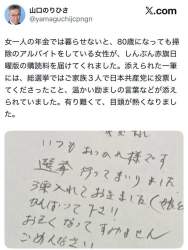 山口のりひさ
@yamaguchijcpngn
X.com
女一人の年金では暮らせないと、80歳になっても掃
除のアルバイトをしている女性が、しんぶん赤旗日
曜版の購読料を届けてくれました。添えられた一筆
には、総選挙ではご家族3人で日本共産党に投票し
てくださったこと、温かい励ましの言葉などが添え
られていました。有り難くて、目頭が熱くなりまし
た。
いつも おせわ様です
選挙 行ってまいりました
3票入れておきました(娘と
がんばって下さい
おそくなってすみません
ごめんなさい